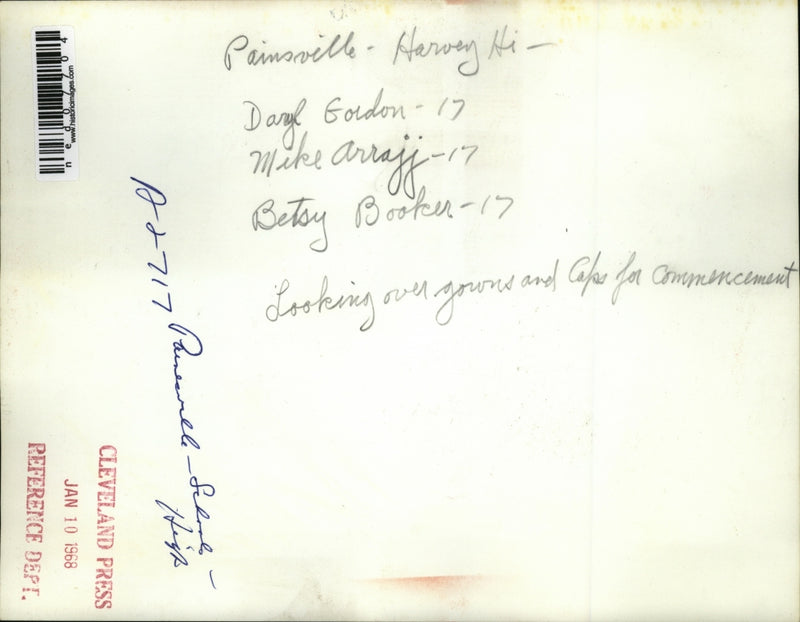 Painsville - Harvey Hi -
Daryl Gordon - 17
Mike Arrajj - 17
Betsy Booker - 17
Looking over gowns and Caps for Commencement
A-2717 Painesville - Schools -
High
CLEVELAND PRESS
JAN 10 1968
REFERENCE DEPT.
www.historicimages.com